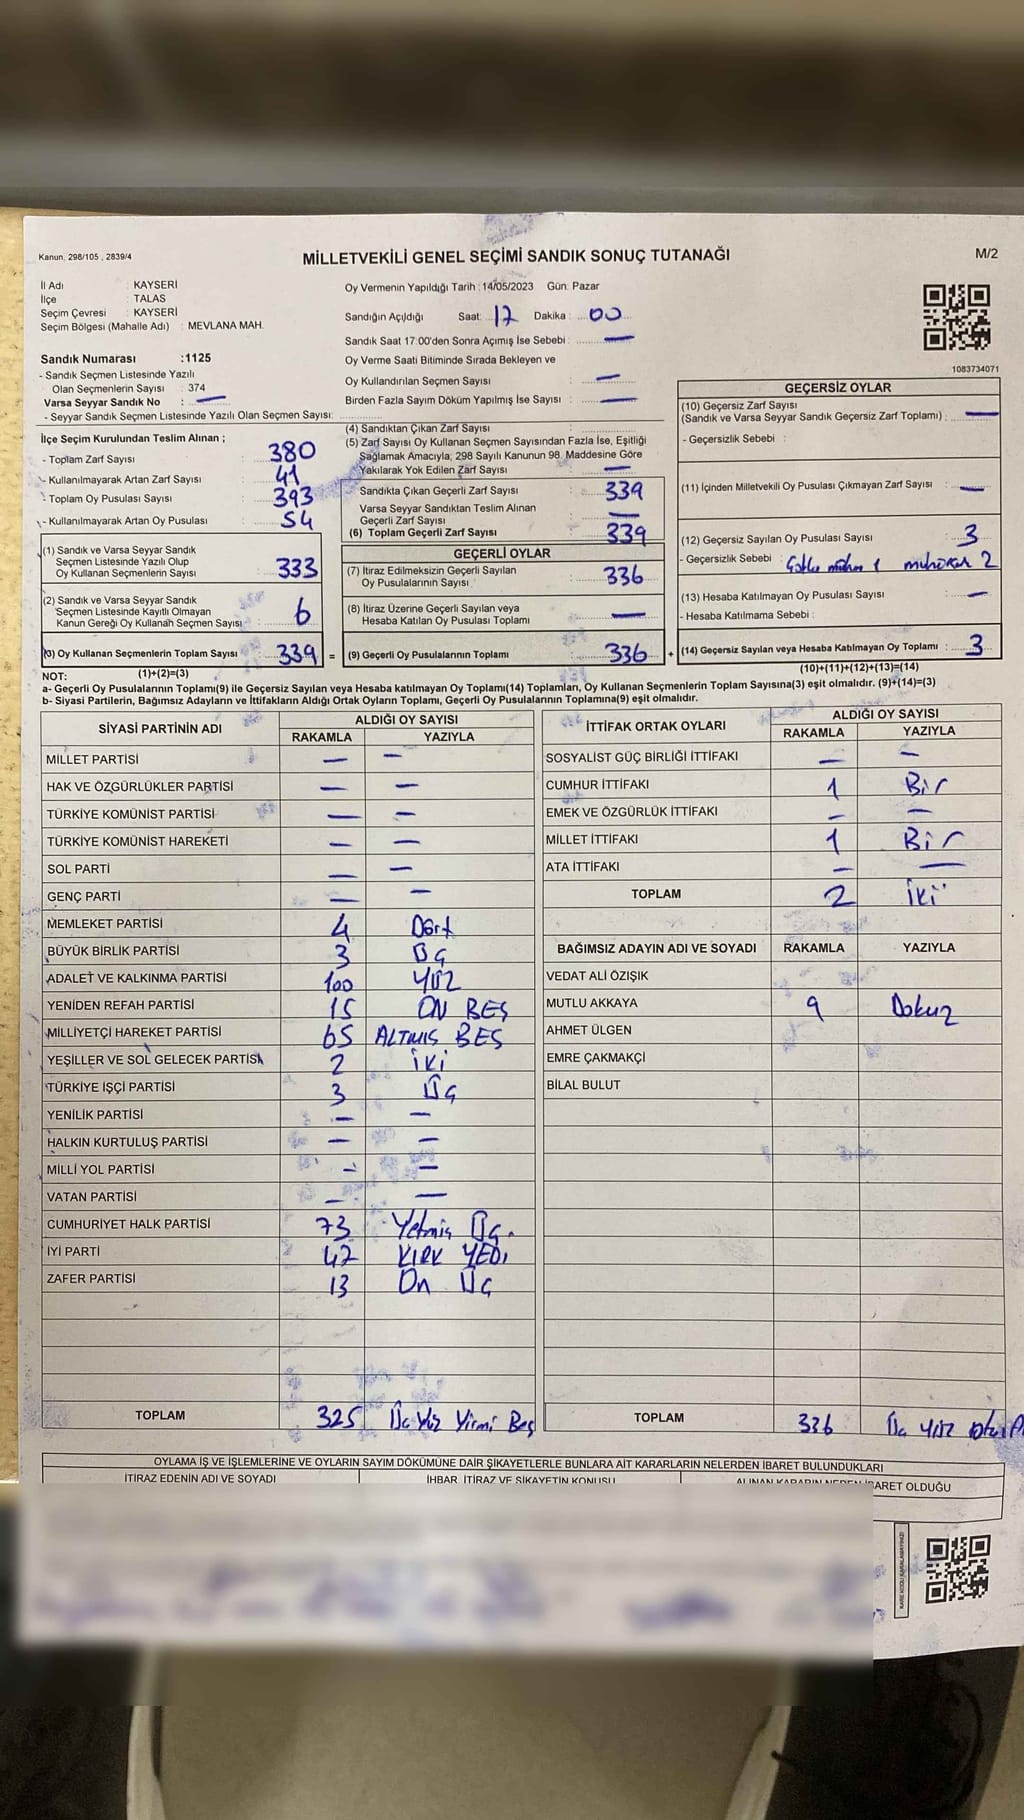 Kanun, 298/105 , 2839/4
MİLLETVEKİLİ GENEL SEÇİMİ SANDIK SONUÇ TUTANAĞI
M/2
İl Adı : KAYSERİ
İlçe : TALAS
Seçim Çevresi : KAYSERİ
Seçim Bölgesi (Mahalle Adı) : MEVLANA MAH.
Sandık Numarası :1125
- Sandık Seçmen Listesinde Yazılı
Olan Seçmenlerin Sayısı : 374
Varsa Seyyar Sandık No : —
- Seyyar Sandık Seçmen Listesinde Yazılı Olan Seçmen Sayısı:
Oy Vermenin Yapıldığı Tarih : 14/05/2023 Gün: Pazar
Sandığın Açıldığı Saat: 17 Dakika : 00
Sandık Saat 17:00'den Sonra Açımış İse Sebebi : —
Oy Verme Saati Bitiminde Sırada Bekleyen ve
Oy Kullandırılan Seçmen Sayısı : —
Birden Fazla Sayım Döküm Yapılmış İse Sayısı : —
1083734071
İlçe Seçim Kurulundan Teslim Alınan ;
- Toplam Zarf Sayısı : 380
- Kullanılmayarak Artan Zarf Sayısı : 41
- Toplam Oy Pusulası Sayısı : 393
- Kullanılmayarak Artan Oy Pusulası : 54
(1) Sandık ve Varsa Seyyar Sandık
Seçmen Listesinde Yazılı Olup
Oy Kullanan Seçmenlerin Sayısı : 333
(2) Sandık ve Varsa Seyyar Sandık
Seçmen Listesinde Kayıtlı Olmayan
Kanun Gereği Oy Kullanan Seçmen Sayısı : 6
(3) Oy Kullanan Seçmenlerin Toplam Sayısı : 339 =
(1)+(2)=(3)
(4) Sandıktan Çıkan Zarf Sayısı :
(5) Zarf Sayısı Oy Kullanan Seçmen Sayısından Fazla İse, Eşitliği
Sağlamak Amacıyla; 298 Sayılı Kanunun 98. Maddesine Göre
Yakılarak Yok Edilen Zarf Sayısı : —
Sandıkta Çıkan Geçerli Zarf Sayısı : 339
Varsa Seyyar Sandıktan Teslim Alınan
Geçerli Zarf Sayısı : —
(6) Toplam Geçerli Zarf Sayısı : 339
GEÇERLİ OYLAR
(7) İtiraz Edilmeksizin Geçerli Sayılan
Oy Pusulalarının Sayısı : 336
(8) İtiraz Üzerine Geçerli Sayılan veya
Hesaba Katılan Oy Pusulası Toplamı : —
(9) Geçerli Oy Pusulalarının Toplamı : 336 +
GEÇERSİZ OYLAR
(10) Geçersiz Zarf Sayısı
(Sandık ve Varsa Seyyar Sandık Geçersiz Zarf Toplamı) : —
- Geçersizlik Sebebi :
(11) İçinden Milletvekili Oy Pusulası Çıkmayan Zarf Sayısı : —
(12) Geçersiz Sayılan Oy Pusulası Sayısı : 3
- Geçersizlik Sebebi : 1 2
(13) Hesaba Katılmayan Oy Pusulası Sayısı : —
- Hesaba Katılmama Sebebi :
(14) Geçersiz Sayılan veya Hesaba Katılmayan Oy Toplamı : 3
(10)+(11)+(12)+(13)=(14)
NOT:
a- Geçerli Oy Pusulalarının Toplamı(9) ile Geçersiz Sayılan veya Hesaba katılmayan Oy Toplamı(14) Toplamları, Oy Kullanan Seçmenlerin Toplam Sayısına(3) eşit olmalıdır. (9)+(14)=(3)
b- Siyasi Partilerin, Bağımsız Adayların ve İttifakların Aldığı Ortak Oyların Toplamı, Geçerli Oy Pusulalarının Toplamına(9) eşit olmalıdır.
SİYASİ PARTİNİN ADI ALDIĞI OY SAYISI
RAKAMLA YAZIYLA
MİLLET PARTİSİ — —
HAK VE ÖZGÜRLÜKLER PARTİSİ — —
TÜRKİYE KOMÜNİST PARTİSİ — —
TÜRKİYE KOMÜNİST HAREKETİ — —
SOL PARTİ — —
GENÇ PARTİ — —
MEMLEKET PARTİSİ 4 Dört
BÜYÜK BİRLİK PARTİSİ 3 Üç
ADALET VE KALKINMA PARTİSİ 100 YÜZ
YENİDEN REFAH PARTİSİ 15 ON BEŞ
MİLLİYETÇİ HAREKET PARTİSİ 65 ALTMIŞ BEŞ
YEŞİLLER VE SOL GELECEK PARTİSİ 2 İki
TÜRKİYE İŞÇİ PARTİSİ 3 Üç
YENİLİK PARTİSİ — —
HALKIN KURTULUŞ PARTİSİ — —
MİLLİ YOL PARTİSİ — —
VATAN PARTİSİ — —
CUMHURİYET HALK PARTİSİ 73 Yetmiş Üç.
İYİ PARTİ 47 KIRK YEDİ
ZAFER PARTİSİ 13 On Üç
TOPLAM 325 Üç Yüz Yirmi Beş
İTTİFAK ORTAK OYLARI ALDIĞI OY SAYISI
RAKAMLA YAZIYLA
SOSYALİST GÜÇ BİRLİĞİ İTTİFAKI — —
CUMHUR İTTİFAKI 1 Bir
EMEK VE ÖZGÜRLÜK İTTİFAKI — —
MİLLET İTTİFAKI 1 Bir
ATA İTTİFAKI — —
TOPLAM 2 İki
BAĞIMSIZ ADAYIN ADI VE SOYADI RAKAMLA YAZIYLA
VEDAT ALİ ÖZIŞIK
MUTLU AKKAYA 9 Dokuz
AHMET ÜLGEN
EMRE ÇAKMAKÇİ
BİLAL BULUT
TOPLAM 336 Üç YÜZ
OYLAMA İŞ VE İŞLEMLERİNE VE OYLARIN SAYIM DÖKÜMÜNE DAİR ŞİKAYETLERLE BUNLARA AİT KARARLARIN NELERDEN İBARET BULUNDUKLARI
İTİRAZ EDENİN ADI VE SOYADI İHBAR, İTİRAZ VE ŞİKAYETİN KONUSU ALINAN KARARIN NEDEN İBARET OLDUĞU